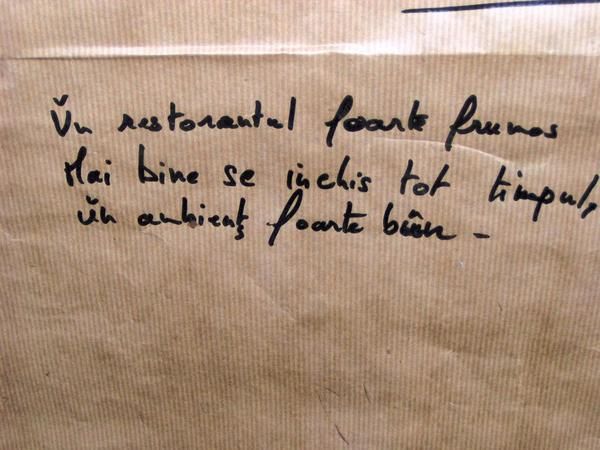 Ŭn restorantul foarte frumos
Mai bine se inchis tot timpul,
ŭn ambienţ foarte